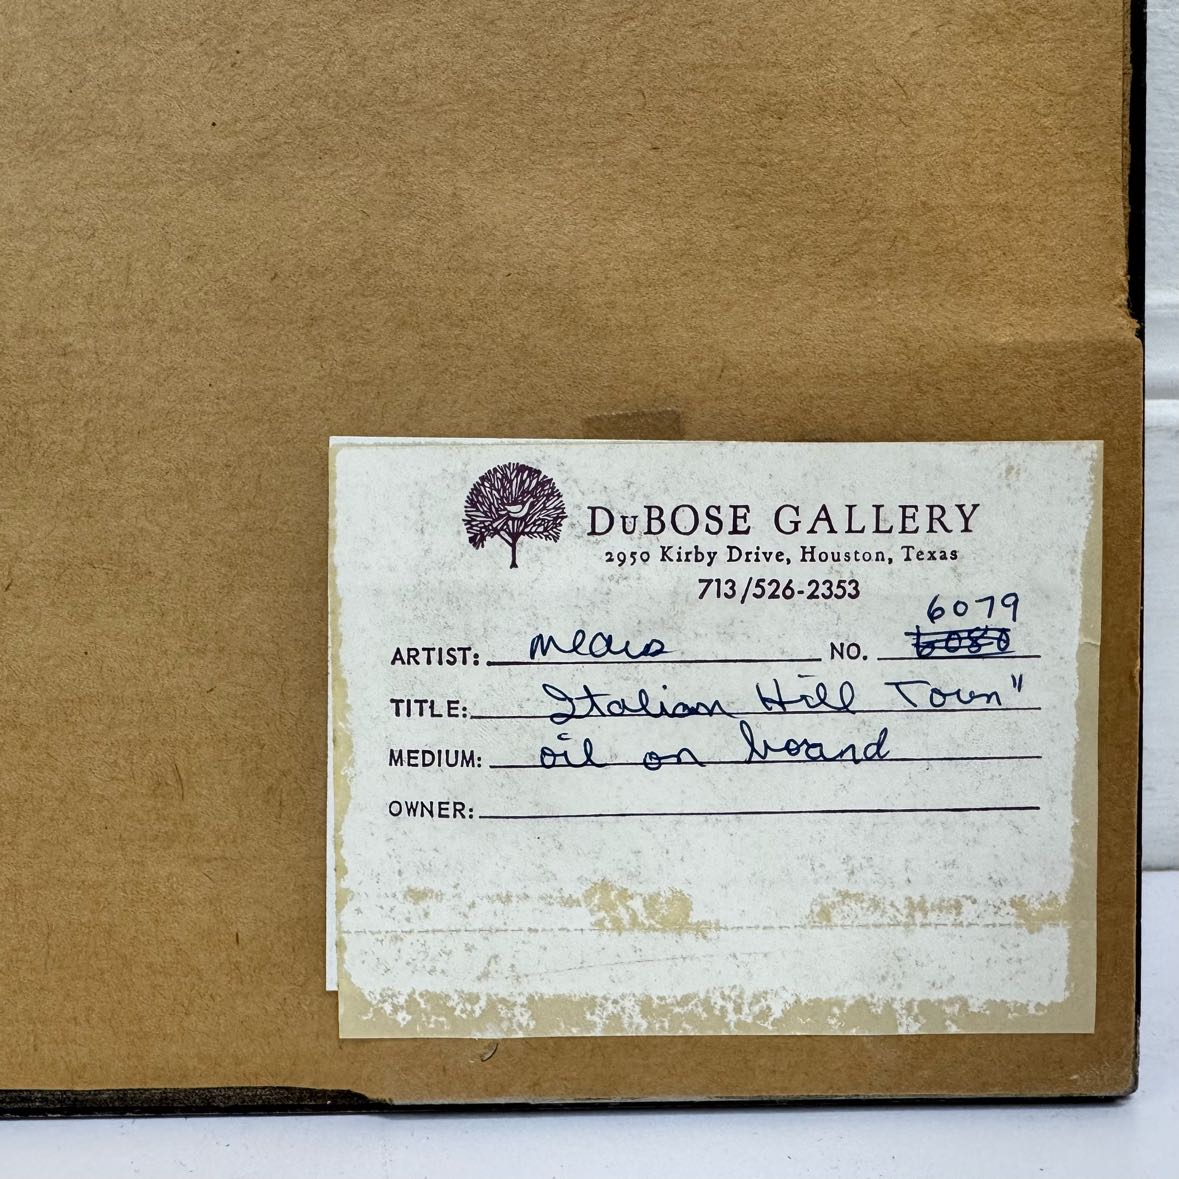 DuBOSE GALLERY
2950 Kirby Drive, Houston, Texas
713/526-2353
6079
ARTIST: Mears NO. 6080
TITLE: Italian Hill Town"
MEDIUM: oil on board
OWNER: